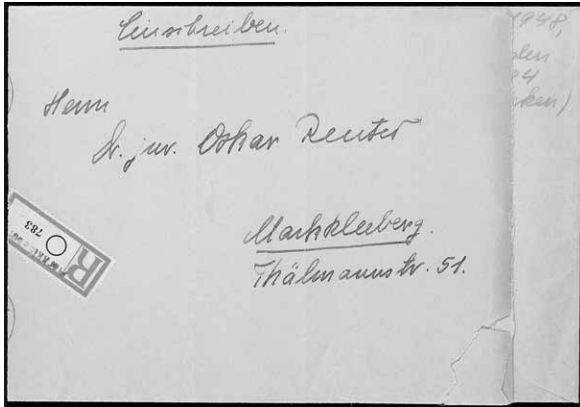 Einschreiben.
Herrn
Dr. jur. Oskar Reuter
Markkleeberg.
Thälmannstr. 51.
R
783
1948,
4
ken)